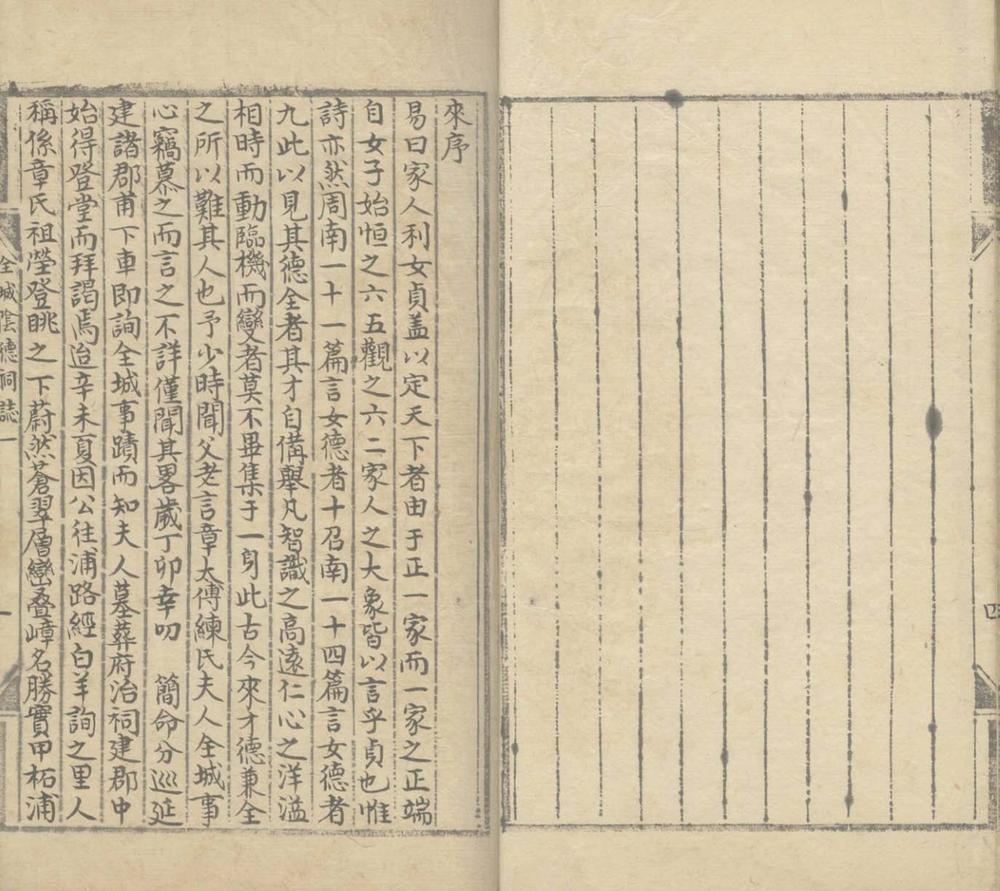 四
來序
易曰家人利女貞盖以定天下者由于正一家而一家之正端
自女子始恒之六五觀之六二家人之大象皆以言乎貞也惟
詩亦然周南一十一篇言女德者十召南一十四篇言女德者
九此以見其德全者其才自備舉凡智識之高遠仁心之洋溢
相時而動臨機而變者莫不畢集于一身此古今來才德兼全
之所以難其人也予少時聞父老言章太傅練氏夫人全城事
心竊慕之而言之不詳僅聞其畧歲丁卯幸叨　簡命分巡延
建諸郡甫下車即詢全城事蹟而知夫人墓葬府治祠建郡中
始得登堂而拜謁焉迨辛未夏因公往浦路經白羊詢之里人
稱係章氏祖塋登眺之下蔚然蒼翠層巒叠嶂名勝實甲柘浦
全城陰德祠誌一
一